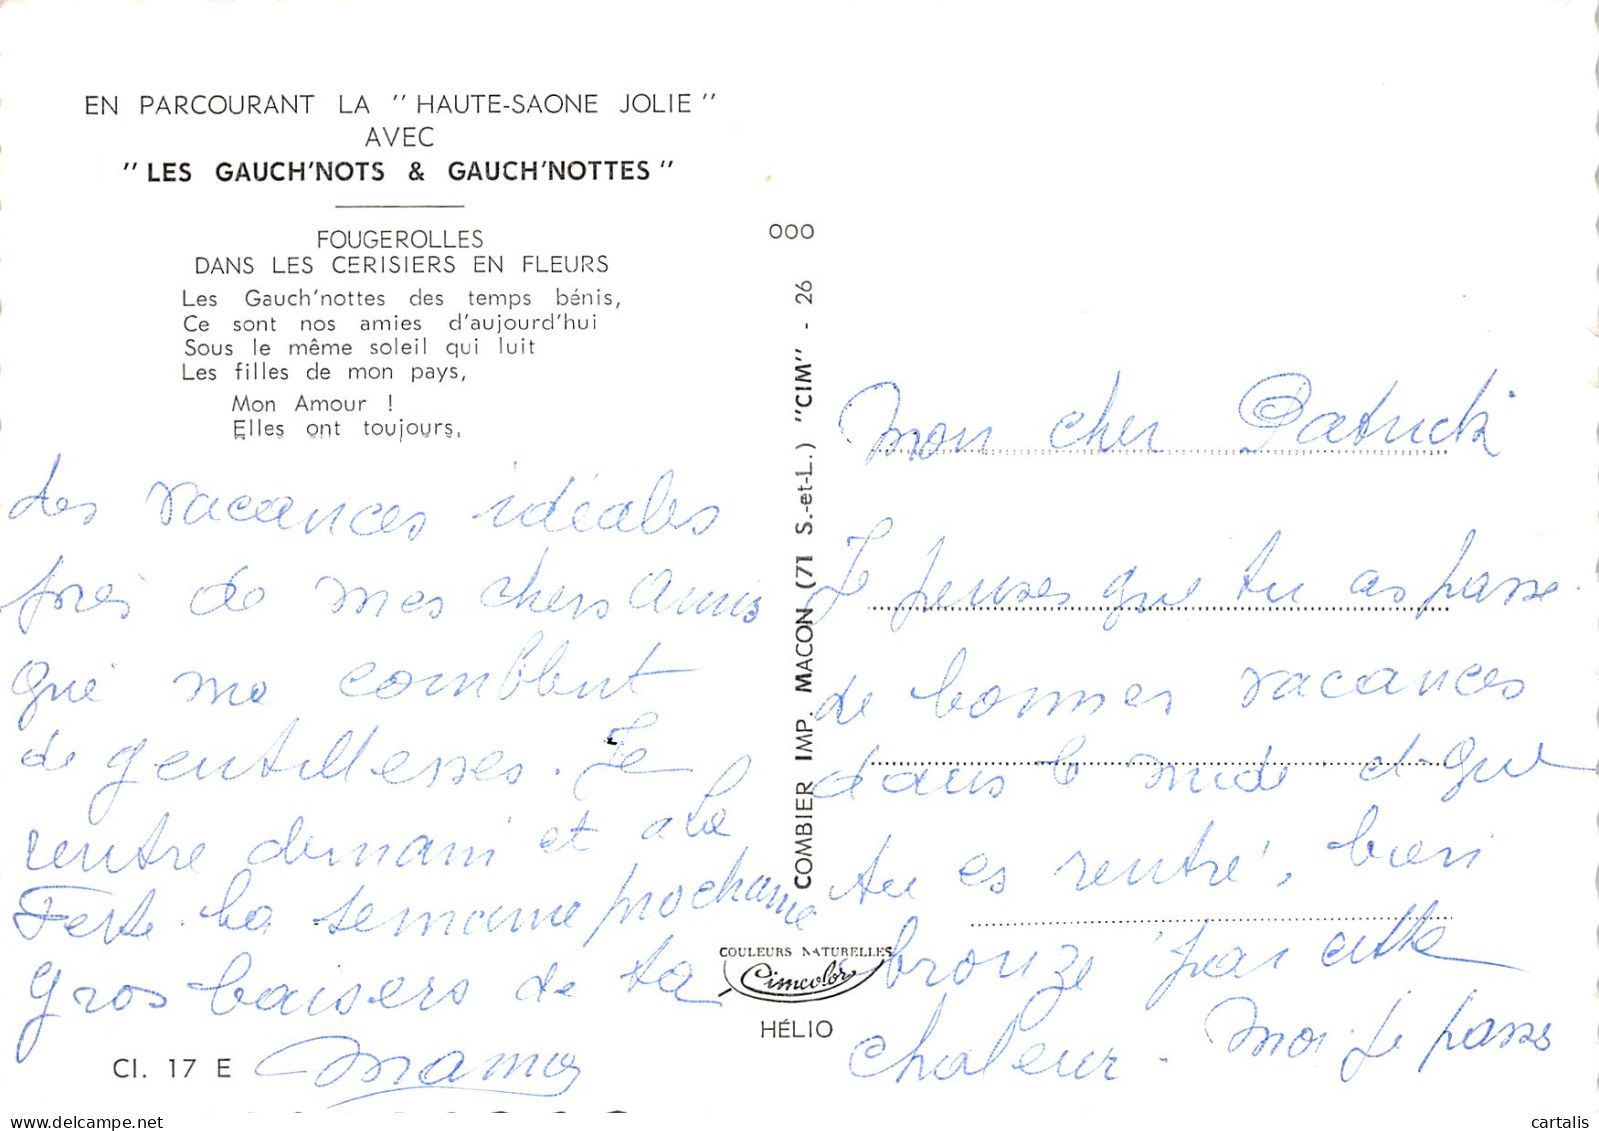 EN PARCOURANT LA "HAUTE-SAONE JOLIE"
AVEC
"LES GAUCH'NOTS & GAUCH'NOTTES"
FOUGEROLLES
DANS LES CERISIERS EN FLEURS
Les Gauch'nottes des temps bénis,
Ce sont nos amies d'aujourd'hui
Sous le même soleil qui luit
Les filles de mon pays,
Mon Amour !
Elles ont toujours,
000
COMBIER IMP. MACON (71 S.-et-L.) "CIM" - 26
Mon cher Patrick
Je penses que tu as passe
de bonnes vacances
dans le midi et que
tu es rentré, bien
bronzé par cette
chaleur. Moi je passe
des vacances idéales
près de mes chers Amis
qui me comblent
de gentillesses. Je
rentre demain et a la
Ferte la semaine prochaine
Gros baisers de ta
Mamy
COULEURS NATURELLES
Cimcolor
HÉLIO
Cl. 17 E
cartalis